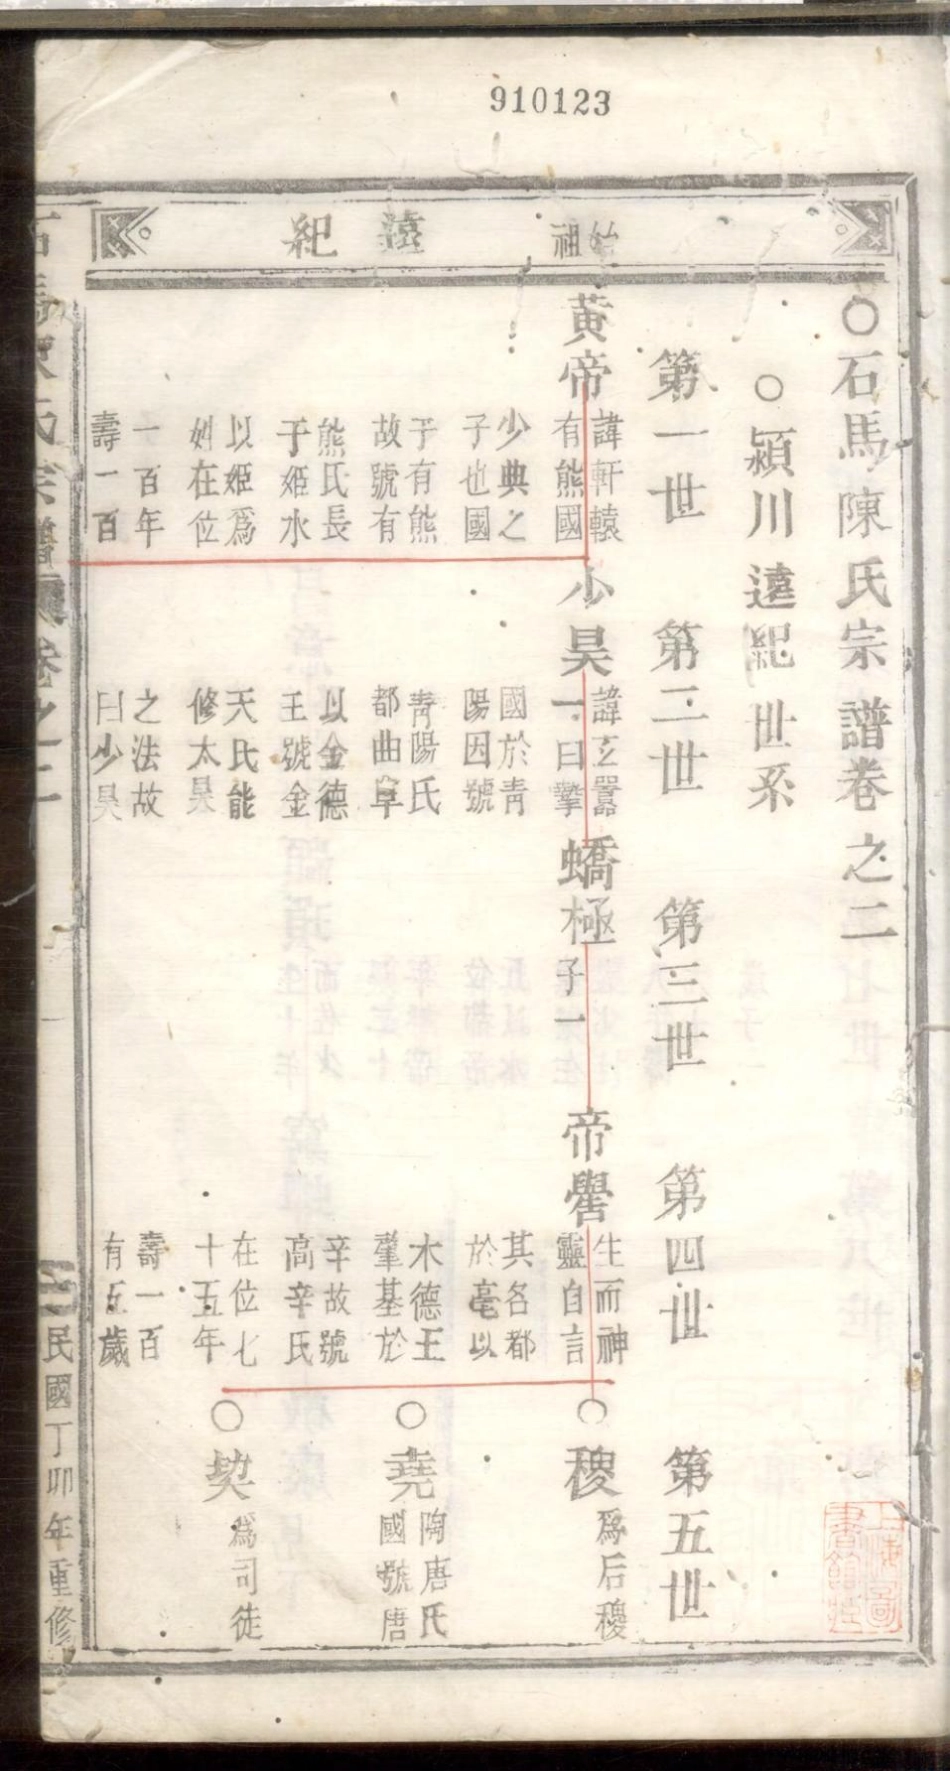 910123
始祖
遠紀
○石馬陳氏宗譜卷之二
○潁川遠紀世系
第一世
第二世
第三世
第四世
第五世
黃帝
諱軒轅
有熊國
少典之
子也國
于有熊
故號有
熊氏長
于姬水
以姬爲
姓在位
一百年
壽一百
少昊
諱玄囂
一曰摯
國於青
陽因號
青陽氏
都曲阜
以金德
王號金
天氏能
修太昊
之法故
曰少昊
蟜極
子一
帝嚳
生而神
靈自言
其名都
於亳以
木德王
肇基於
辛故號
高辛氏
在位七
十五年
壽一百
有五歲
○稷
爲后稷
○堯
陶唐氏
國號唐
○契
爲司徒
石馬陳氏宗譜
卷之二
民國丁卯年重修
上海圖書館藏